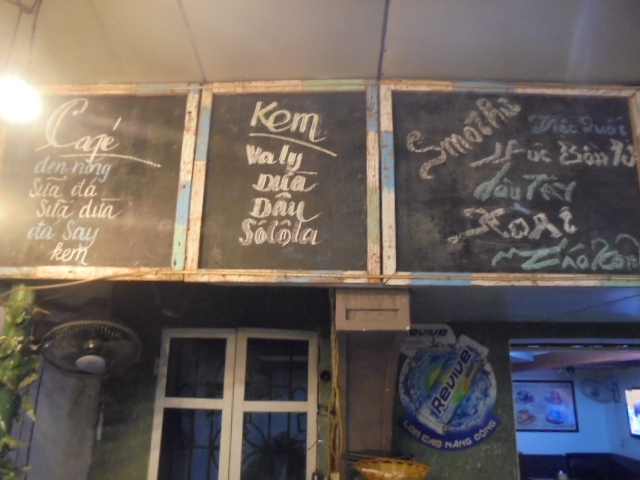 Café
đen nóng
Sữa đá
Sữa dừa
đá Say
kem
Kem
Valy
Dừa
Dâu
Sôlôla
Smothi
Việt Quất
Phúc Bồn Tử
dâu Tây
XOÀI
Revive
Revive
LỰA CAO NĂNG ĐỘNG